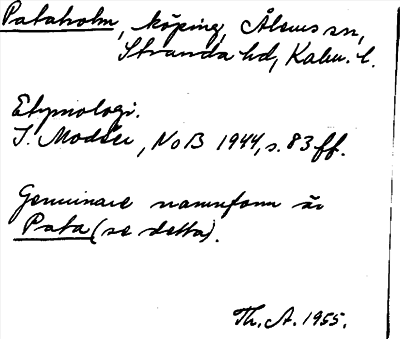 Pataholm, köping, Ålems sn,
Stranda hd, Kalm. l.
Etymologi.
I. Modéer, NoB 1944, s. 83 ff.
Genuinare namnform är
Pata (se detta).
Th. A. 1955.